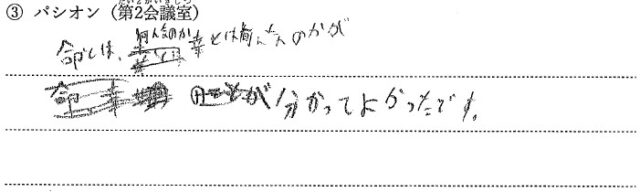 ③ パシオン（第2会議室）
命とは、何んなのか幸とは何んなのかが
分かってよかったです。